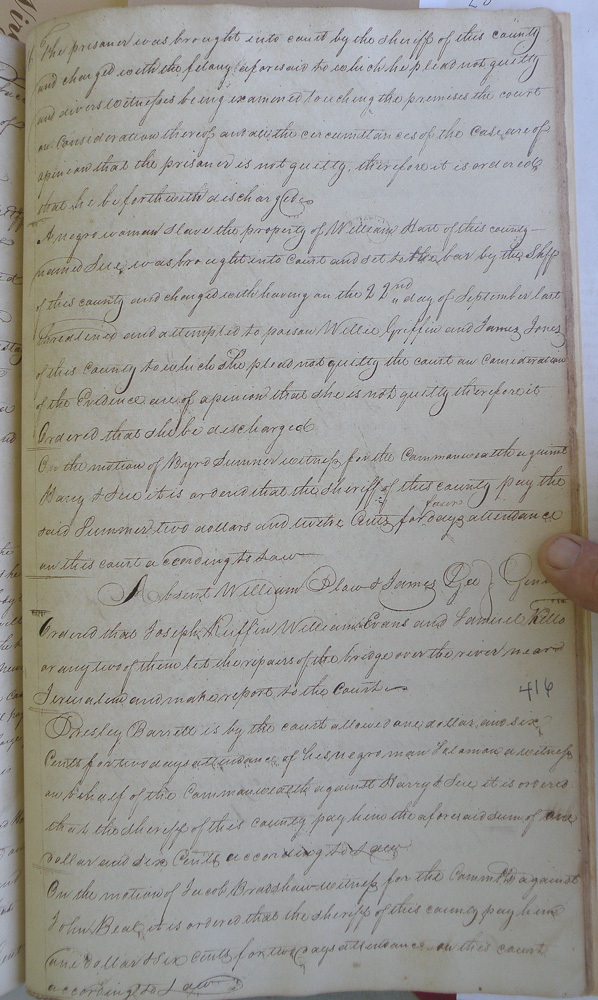 The prisoner was brought into court by the sheriff of this county
and charged with the felony aforesaid to which he plead not guilty
and divers witnesses being examined touching the premises the court
on Consideration thereof and all the circumstances of the Case are of
opinion that the prisoner is not guilty, therefore it is ordered
that he be forthwith discharged
A negro woman slave the property of William Hart of this county
named Sue, was brought into court and set to the bar by the Shff
of this county and charged with having on the 22nd day of September last
threatened and attempted to poison Willie Griffin and James Jones
of this County to which She plead not guilty the court on Consideration
of the Evidence are of opinion that she is not guilty therefore it
Ordered that she be discharged
On the motion of Byrd Sumner witness for the Commonwealth against
Harry & Sue it is ordered that the sheriff of this county pay the
said Summer two dollars and twelve Cents for four days attendance
on this court according to Law
Absent William Blow & James Gee } Gent
Ordered that Joseph Ruffin William Evans and Samuel Kello
or any two of them let the repairs of the bridge over the river near
Jerusalem and make report to the Court
416
Presley Barrett is by the court allowed one dollar and six
Cents for two days attendance of his negro man Solomon a witness
on behalf of the Commonwealth against Harry & Sue it is ordered
that the sheriff of this county pay him the aforesaid sum of one
dollar and six Cents according to Law
On the motion of Jacob Bradshaw witness for the Commth against
John Beal, it is ordered that the sheriff of this county pay him
one dollar & six cents for two days attendance on this court
according to Law